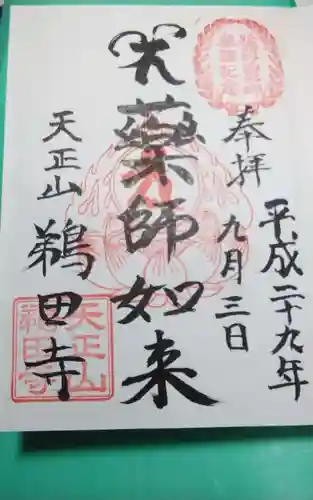 奉拝
平成二十九年
九月三日
薬師如来
天正山
鵜田寺
天正山
鵜田寺